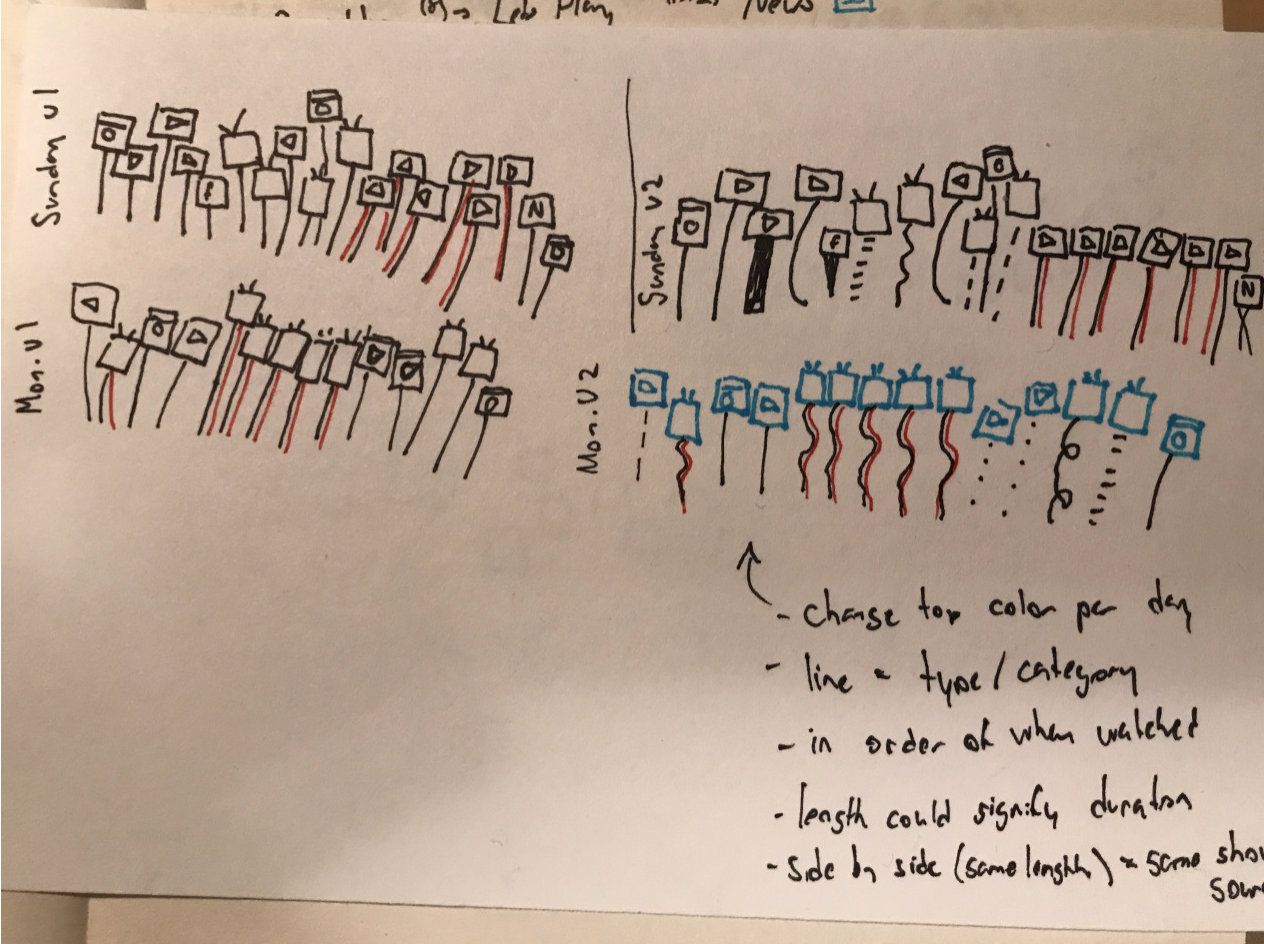 Leb Plan
News
Sunday v1
Sunday v2
Mon. v1
Mon. V2
- change top color per day
- line = type / category
- in order of when watched
- length could signify duration
- side by side (same length) = same